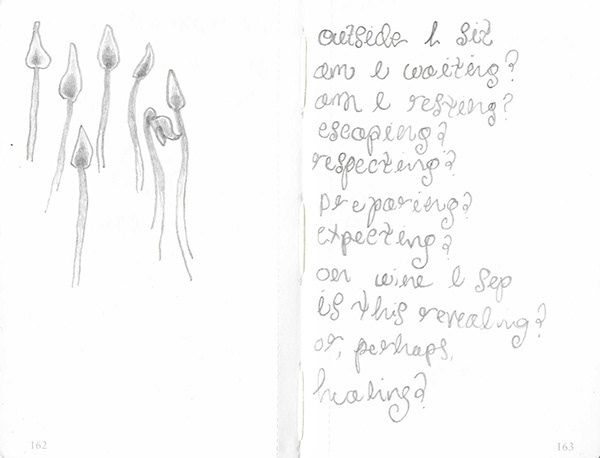 outside I sit
am I waiting?
am I resting?
escaping?
respecting?
preparing?
expecting?
on wine I sip
is this revealing?
or, perhaps,
healing?
162
163